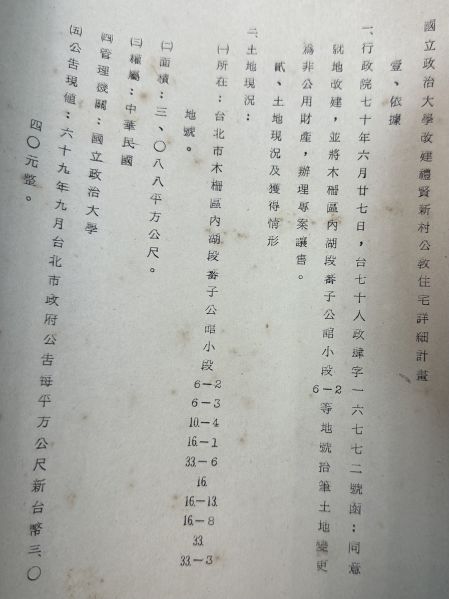 國立政治大學改建禮賢新村公教住宅詳細計畫
壹、依據
一、行政院七十年六月廿七日，台七十人政肆字一六七七二號函：同意
就地改建，並將木柵區內湖段番子公館小段6-2等地號拾筆土地變更
為非公用財產，辦理專案讓售。
貳、土地現況及獲得情形
二、土地現況：
㈠所在：台北市木柵區內湖段番子公館小段 6-2 6-3 10-4 16-1 33-6 16 16-13 16-8 33 33-3
地號。
㈡面積：三、〇八八平方公尺。
㈢權屬：中華民國
㈣管理機關：國立政治大學
㈤公告現值：六十九年九月台北市政府公告每平方公尺新台幣三、〇
四〇元整。